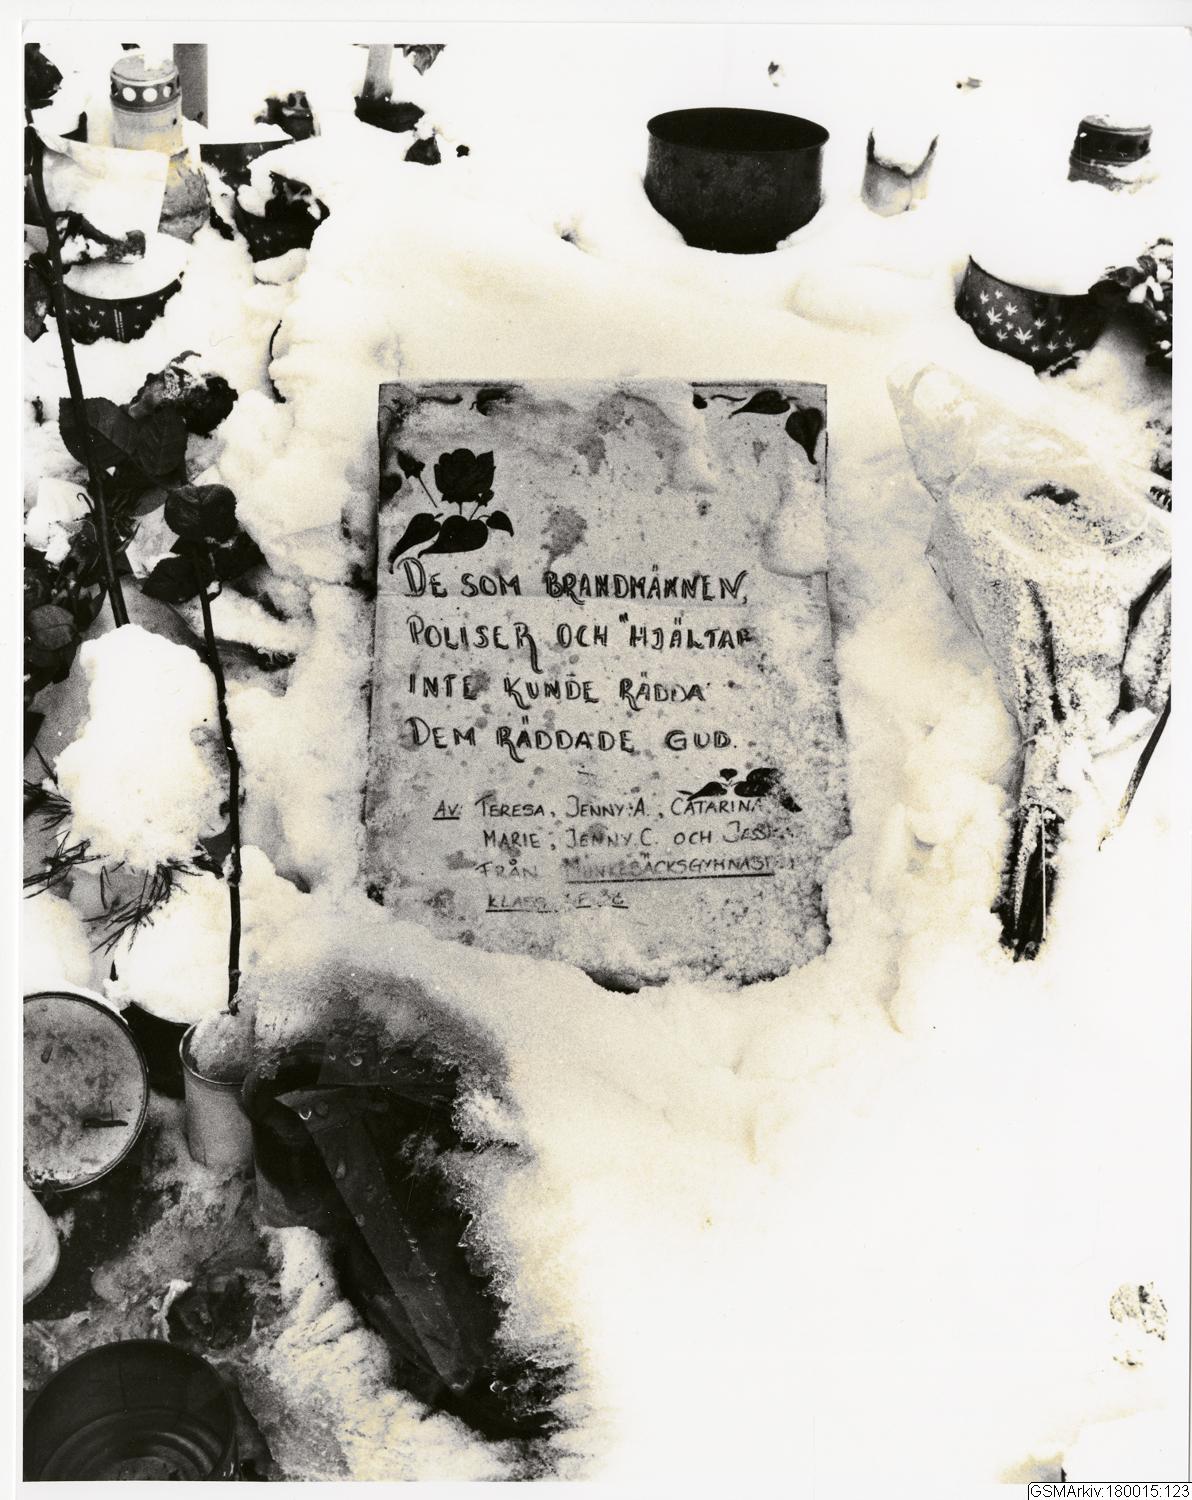 DE SOM BRANDMÄNNEN,
POLISER OCH "HJÄLTAR
INTE KUNDE RÄDDA
DEM RÄDDADE GUD.
AV: TERESA, JENNY.A., CATARINA
MARIE, JENNY.C. OCH
FRÅN MUNKEBÄCKSGYMNASIET
KLASS
GSMArkiv:180015:123